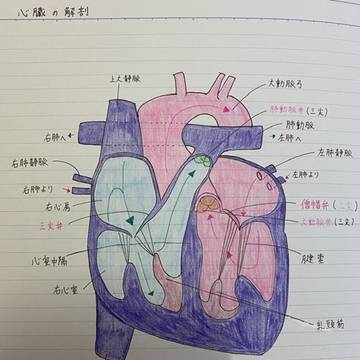 心臓の解剖
上大静脈
大動脈弓
肺動脈弁(三尖)
肺動脈
右肺へ
左肺へ
右肺静脈
左肺静脈
右肺より
左肺より
右心房
僧帽弁(二尖)
三尖弁
大動脈弁(三尖)
心室中隔
腱索
右心室
乳頭筋